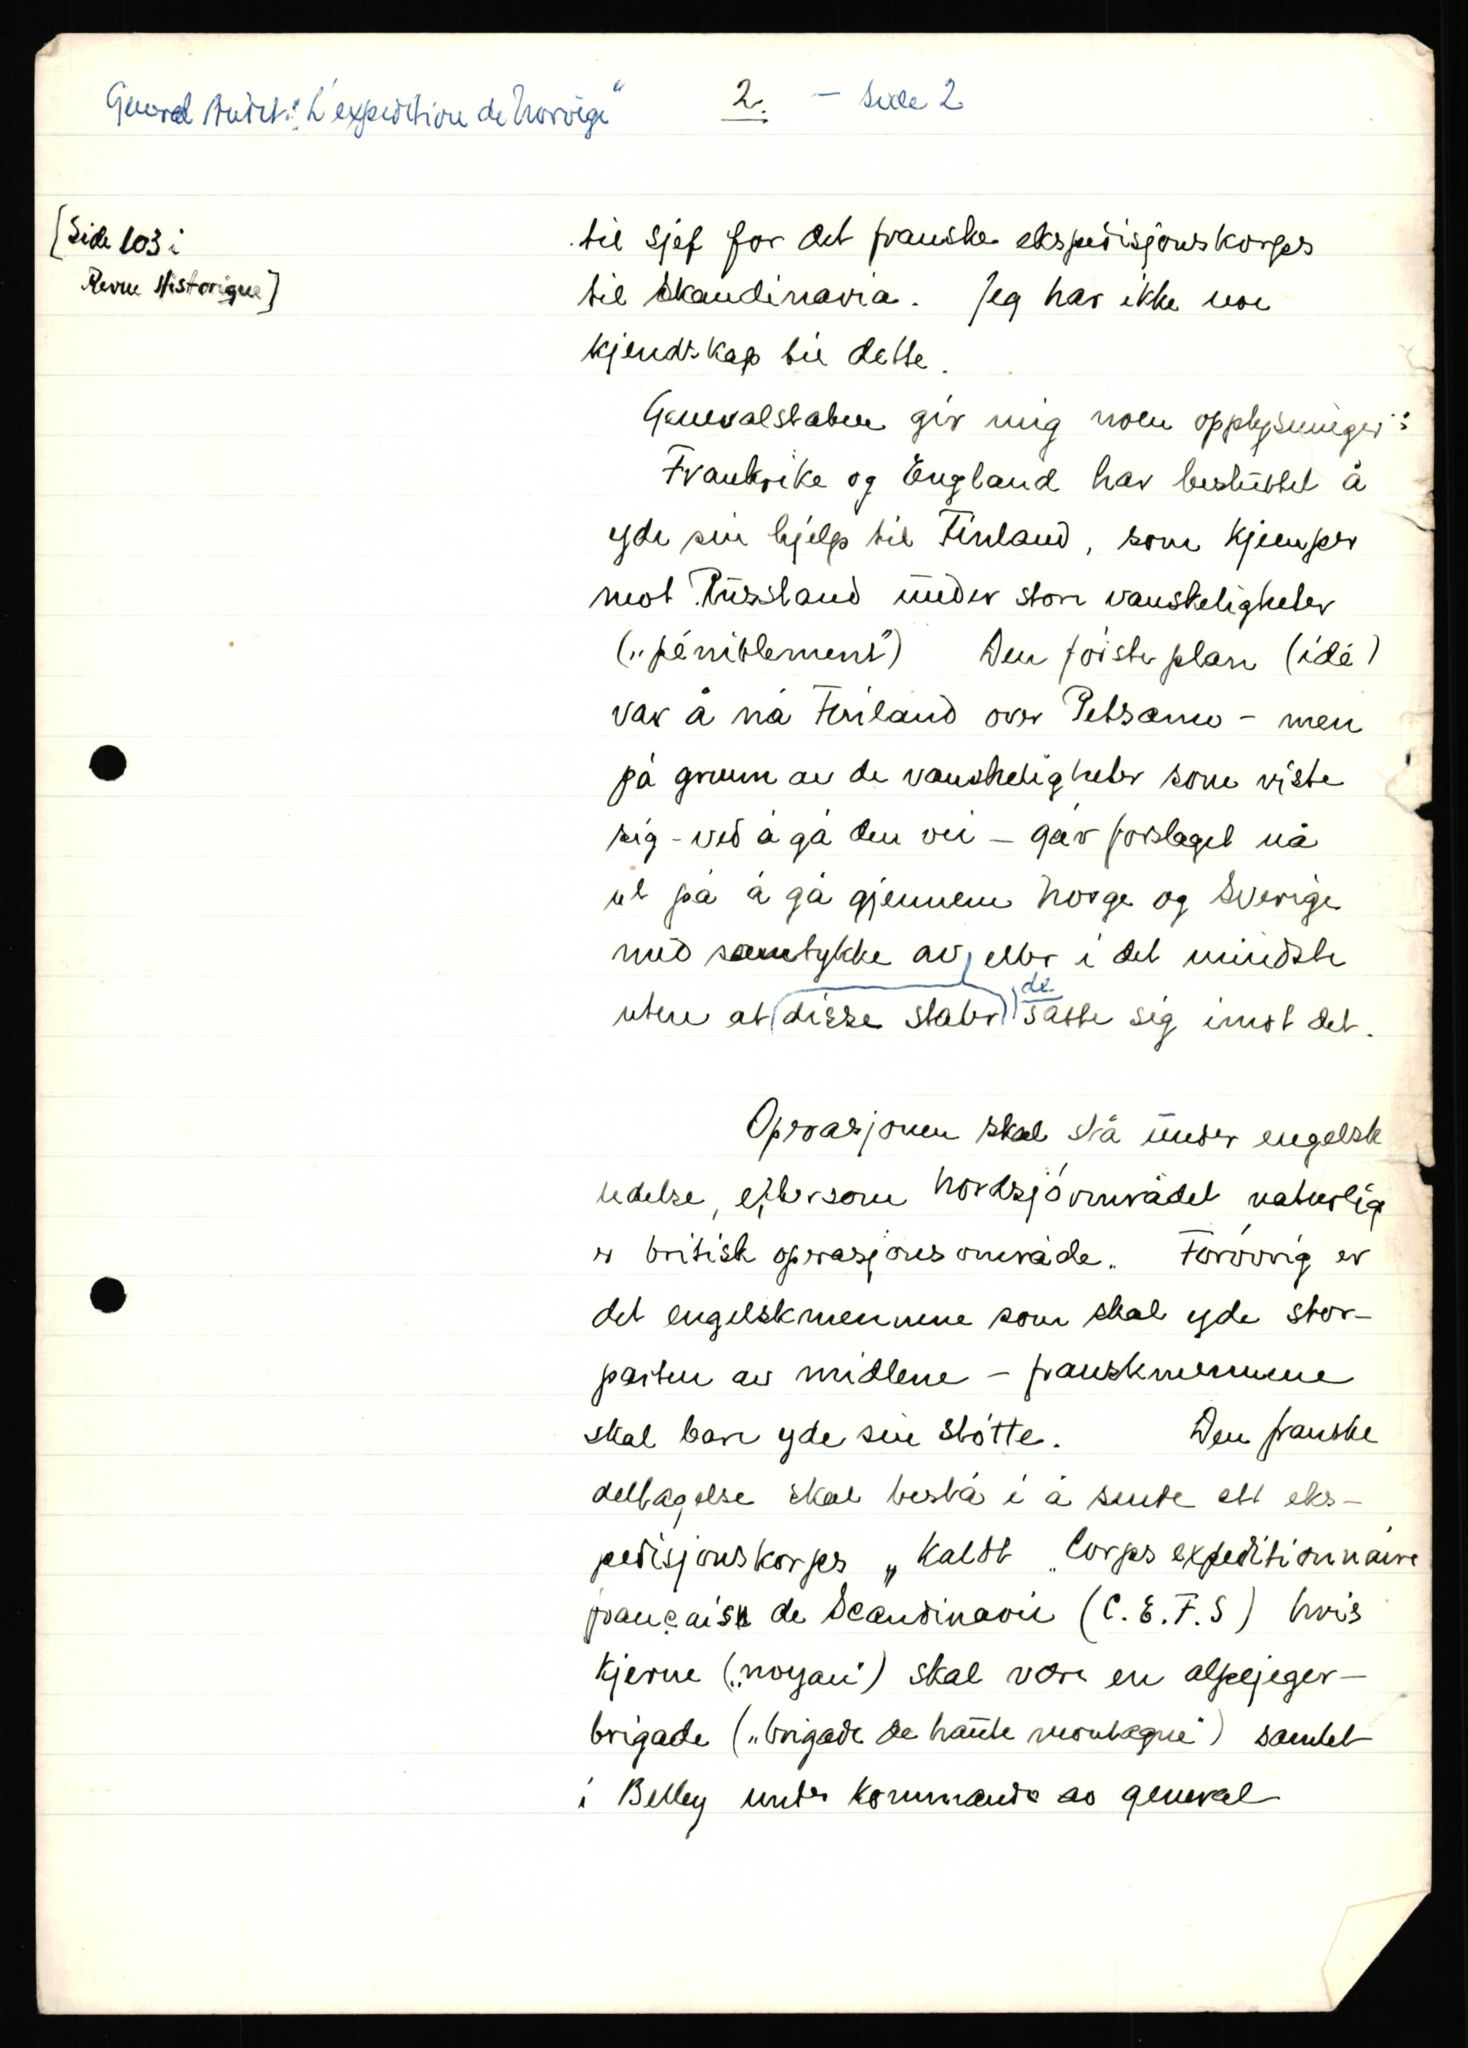 General Audet: "L'expedition de Norvège" 2. – Side 2
[Side 103 i
Revue Historique]
til sjef for det franske ekspedisjonskorps
til Skandinavia. Jeg har ikke noe
kjendskap til dette.
Generalstaben gir mig noen opplysninger:
Frankrike og England har besluttet å
yde sin hjelp til Finland, som kjemper
mot Russland under store vanskeligheter
(„péniblement") Den første plan (idé)
var å nå Finland over Petsamo – men
på grunn av de vanskeligheter som viste
sig – ved å gå den vei – går forslaget nå
ut på å gå gjennem Norge og Sverige
med samtykke av, eller i det mindste
uten at disse stater de satte sig imot det.
Operasjonen skal stå under engelsk
ledelse, eftersom Nordsjøområdet naturlig
er britisk operasjonsområde. Forøvrig er
det engelskmennene som skal yde stor-
parten av midlene – franskmennene
skal bare yde sin støtte. Den franske
deltagelse skal bestå i å sende ett eks-
pedisjonskorps „ kaldt „Corps expeditionnaire
français de Scandinavie (C.E.F.S) hvis
kjerne („noyau") skal være en alpejeger-
brigade („brigade de haute montagne") samlet
i Belley under kommando av general